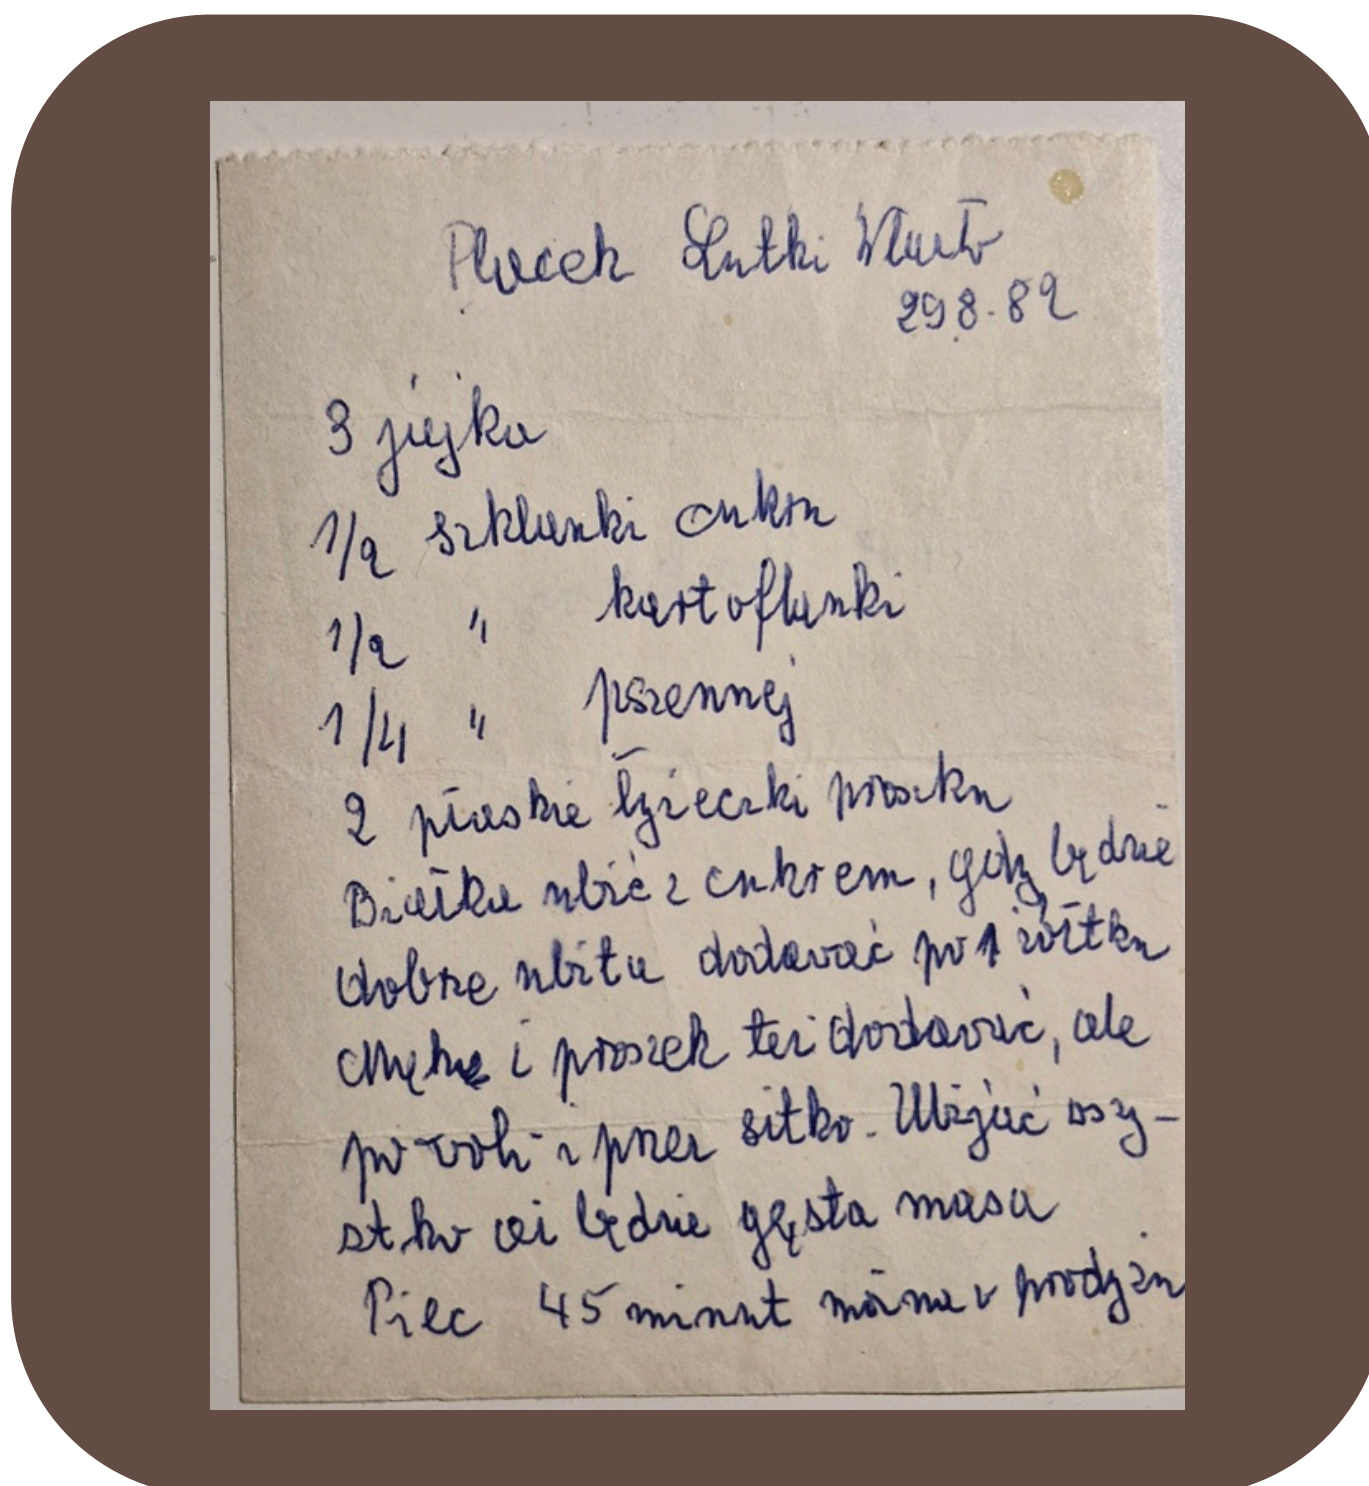 Placek Lutki
29.8.82
3 jajka
1/2 szklanki cukru
1/2 " kartoflanki
1/4 " pszennej
2 płaskie łyżeczki proszku
Białka ubić z cukrem, gdy będzie
dobrze ubita dodawać po 1 żółtku
Mąkę i proszek też dodawać, ale
po woli i przez sitko. Ubijać wszy-
stko aż będzie gęsta masa
Piec 45 minut można w prodyżu